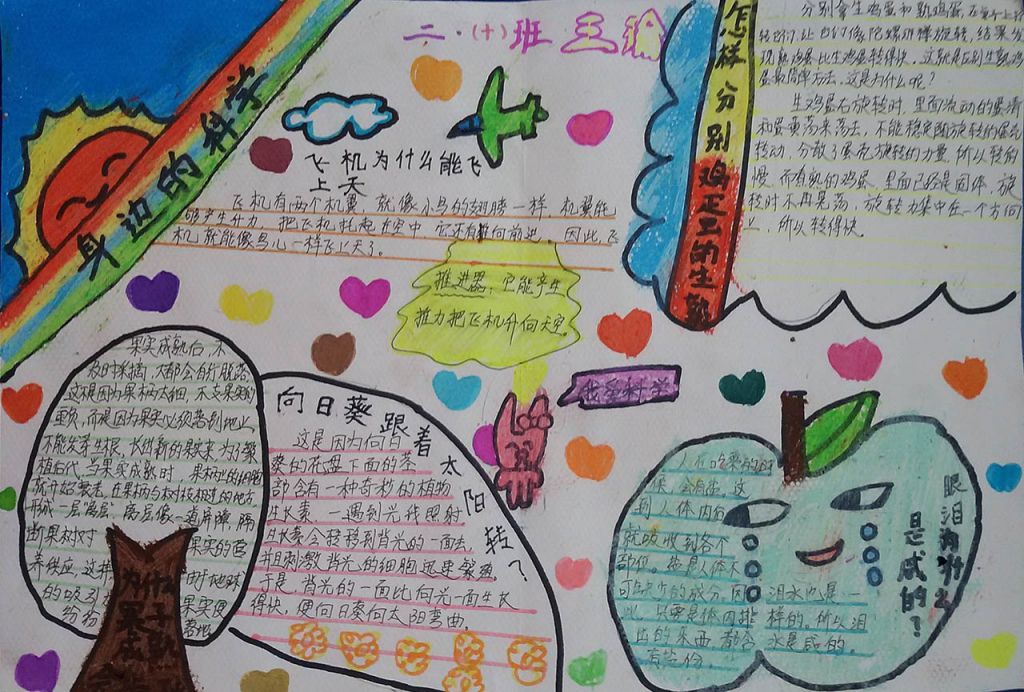 二.(十)班 王瑜
身边的科学
飞机为什么能飞
上天
飞机有两个机翼,就像小鸟的翅膀一样,机翼能
够产生升力,把飞机托起在空中,它还有推向前进,因此,飞
机就能像鸟儿一样飞上天了。
推进器,它能产生
推力把飞机升向天空。
怎样分别鸡蛋的生熟
分别拿生鸡蛋和熟鸡蛋,在桌子上旋
转它们,让它们像陀螺那样旋转,结果发
现熟鸡蛋比生鸡蛋转得快。这就是区别生熟鸡
蛋最简单方法。这是为什么呢?
生鸡蛋在旋转时,里面流动的蛋清
和蛋黄荡来荡去,不能稳定随旋转的蛋壳
转动,分散了蛋壳旋转的力量,所以转的
慢,而煮熟的鸡蛋,里面已经是固体,旋
转时不再晃荡,旋转力集中在一个方向
上,所以转得快。
我爱科学
果实成熟后,不
及时采摘,大都会自行脱落,
这是因为果柄太细,不支果实的
重负,而是因为果实必须落到地上,
不能发芽生根,长出新的果实来,为了繁
殖后代,当果实成熟时,果柄上的细胞
就开始衰老,在果柄与树枝相连的地方
形成一层离层,离层像一道屏障,隔
断果树对 果实的营
养供应,这样 由于地球
的吸引 果实便
纷纷 落地
向日葵跟着太阳转?
这是因为向日
葵的花盘下面的茎
部含有一种奇妙的植物
生长素,一遇到光线照射
生长素会转移到背光的一面去,
并且刺激背光的细胞迅速繁殖,
于是,背光的一面比向光一面生长
得快,使向日葵向太阳弯曲。
眼泪为什么
是咸的?
人在吃東西的时
候,会有盐,这
到人体内后
就吸收到各个
部份,盐是人体不
可缺少的成分,因 泪水也是一
此,只要是体内排 样的。所以泪
出的东西都含 水是咸的。
有盐份